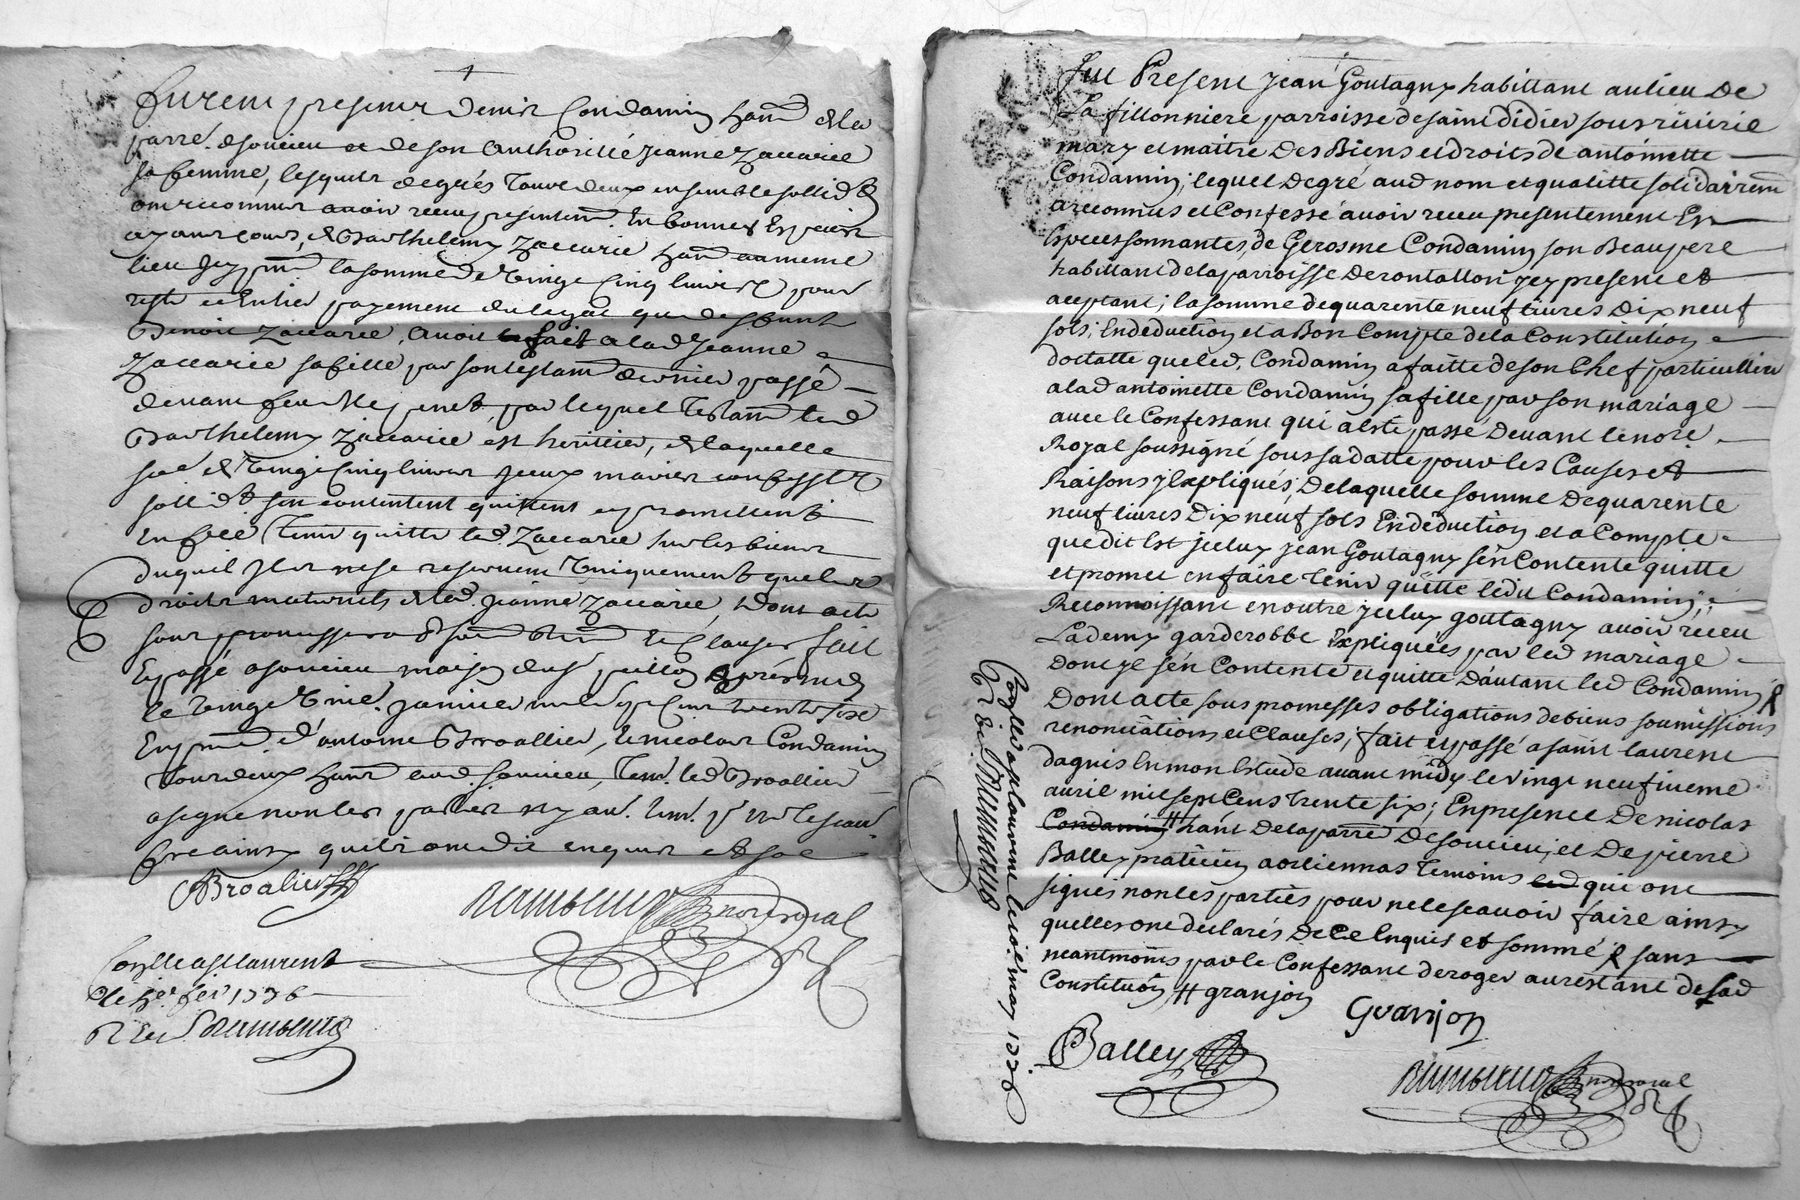 furent presents Denis Condamin hant de la
parre. de soucieu et de son authoritté jeanne Zaccarie
sa femme, lesquels de grés tous deux ensemble sollidt
ont reconnus avoir receu presentemt. En bonnes Espeices
ayant cours, de Barthelemy Zaccarie hant au meme
lieu jcy pnt la somme de Vingt Cinq livres pour
reste et Entier payement du legat que deffunt
Benoit Zaccarie, avoit fait a lad jeanne
Zaccarie sa fille par son testamt dernier passé
devant feu Me pinet, par lequel testamt led
Barthelemy Zaccarie est herittier, de laquelle
som de Vingt Cinq livres jceux mariés confessts
sollidt s'en contentent quittent et promettent
En fre Tenir quitte led. Zaccarie sur les biens
duquel jls ne se reservent Uniquement que les
droits maternels de lad. jeanne Zaccarie, Dont acte
sous promesses et Clauses fait
Et passé a soucieu maison du sr apres midy
le Vingt janvier mil sept Cens trente six
En pnce. d'antoine Broallier, et nicolas Condamin
tous deux hants aud. soucieu, tem. led Broallier
a signé non les parties ny au. tem. pr ne le scav.
fre ainsy qu'ils ont dit enquis et soe
ABroalier
not royal
Conllé a st laurent
le fer 1736
R
Fut Present jean Goutagny habittant au lieu De
La fillonniere parroisse de saint didier sous riverie
mary et maître Des Biens et droits de antoinette
Condamin; lequel De gré aud nom et qualitté solidairemt
a reconnus et Confessé avoir receu presentement En
Especes sonnantes, de Gerosme Condamin son Beaupere
habittant de la parroisse De rontallon jcy present et
aceptant; la somme de quarente neuf livres Dix neuf
sols; En déduction et a Bon Compte de la Constitution
dottalle que led. Condamin a faitte de son Chef particullier
a lad antoinette Condamin sa fille par son mariage
avec le Confessant qui a esté passé Devant le nore
Royal soussigné sous sa datte pour les Causes et
Raisons y Expliqués; De laquelle somme De quarente
neuf livres Dix neuf sols En déduction et a Compte
que dit Est jceluy jean Goutagny s'en Contente quitte
et promet en faire Tenir quitte ledit Condamin;
Reconnoissant en outre jceluy goutagny avoir receu
La demy garderobbe Expliquées par led mariage
Dont jl s'en Contente et quitte D'autant led Condamin
Dont acte sous promesses obligations de biens soumissions
renonciations et Clauses; fait et passé a saint laurent
dagnis En mon Estude avant midy le vingt neufvieme
avril mil sept Cens Trente six; En presence De nicolas
Condamin hant De la parre De soucieu; et De pierre
Balley praticien a orliennas Temoins led qui ont
signés non les parties pour ne le scavoir faire ainsy
quelles ont declarés De Ce Enquis et sommé sans
neantmoins par le Confessant deroger au restant de lad
Constitution granjon
Granjon
Balley
not royal
Conllé a st laurent le may 1736